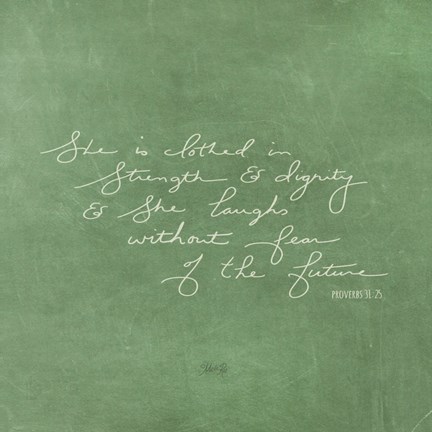 She is clothed in
Strength & dignity
& She laughs
without fear
of the future
PROVERBS 31:25